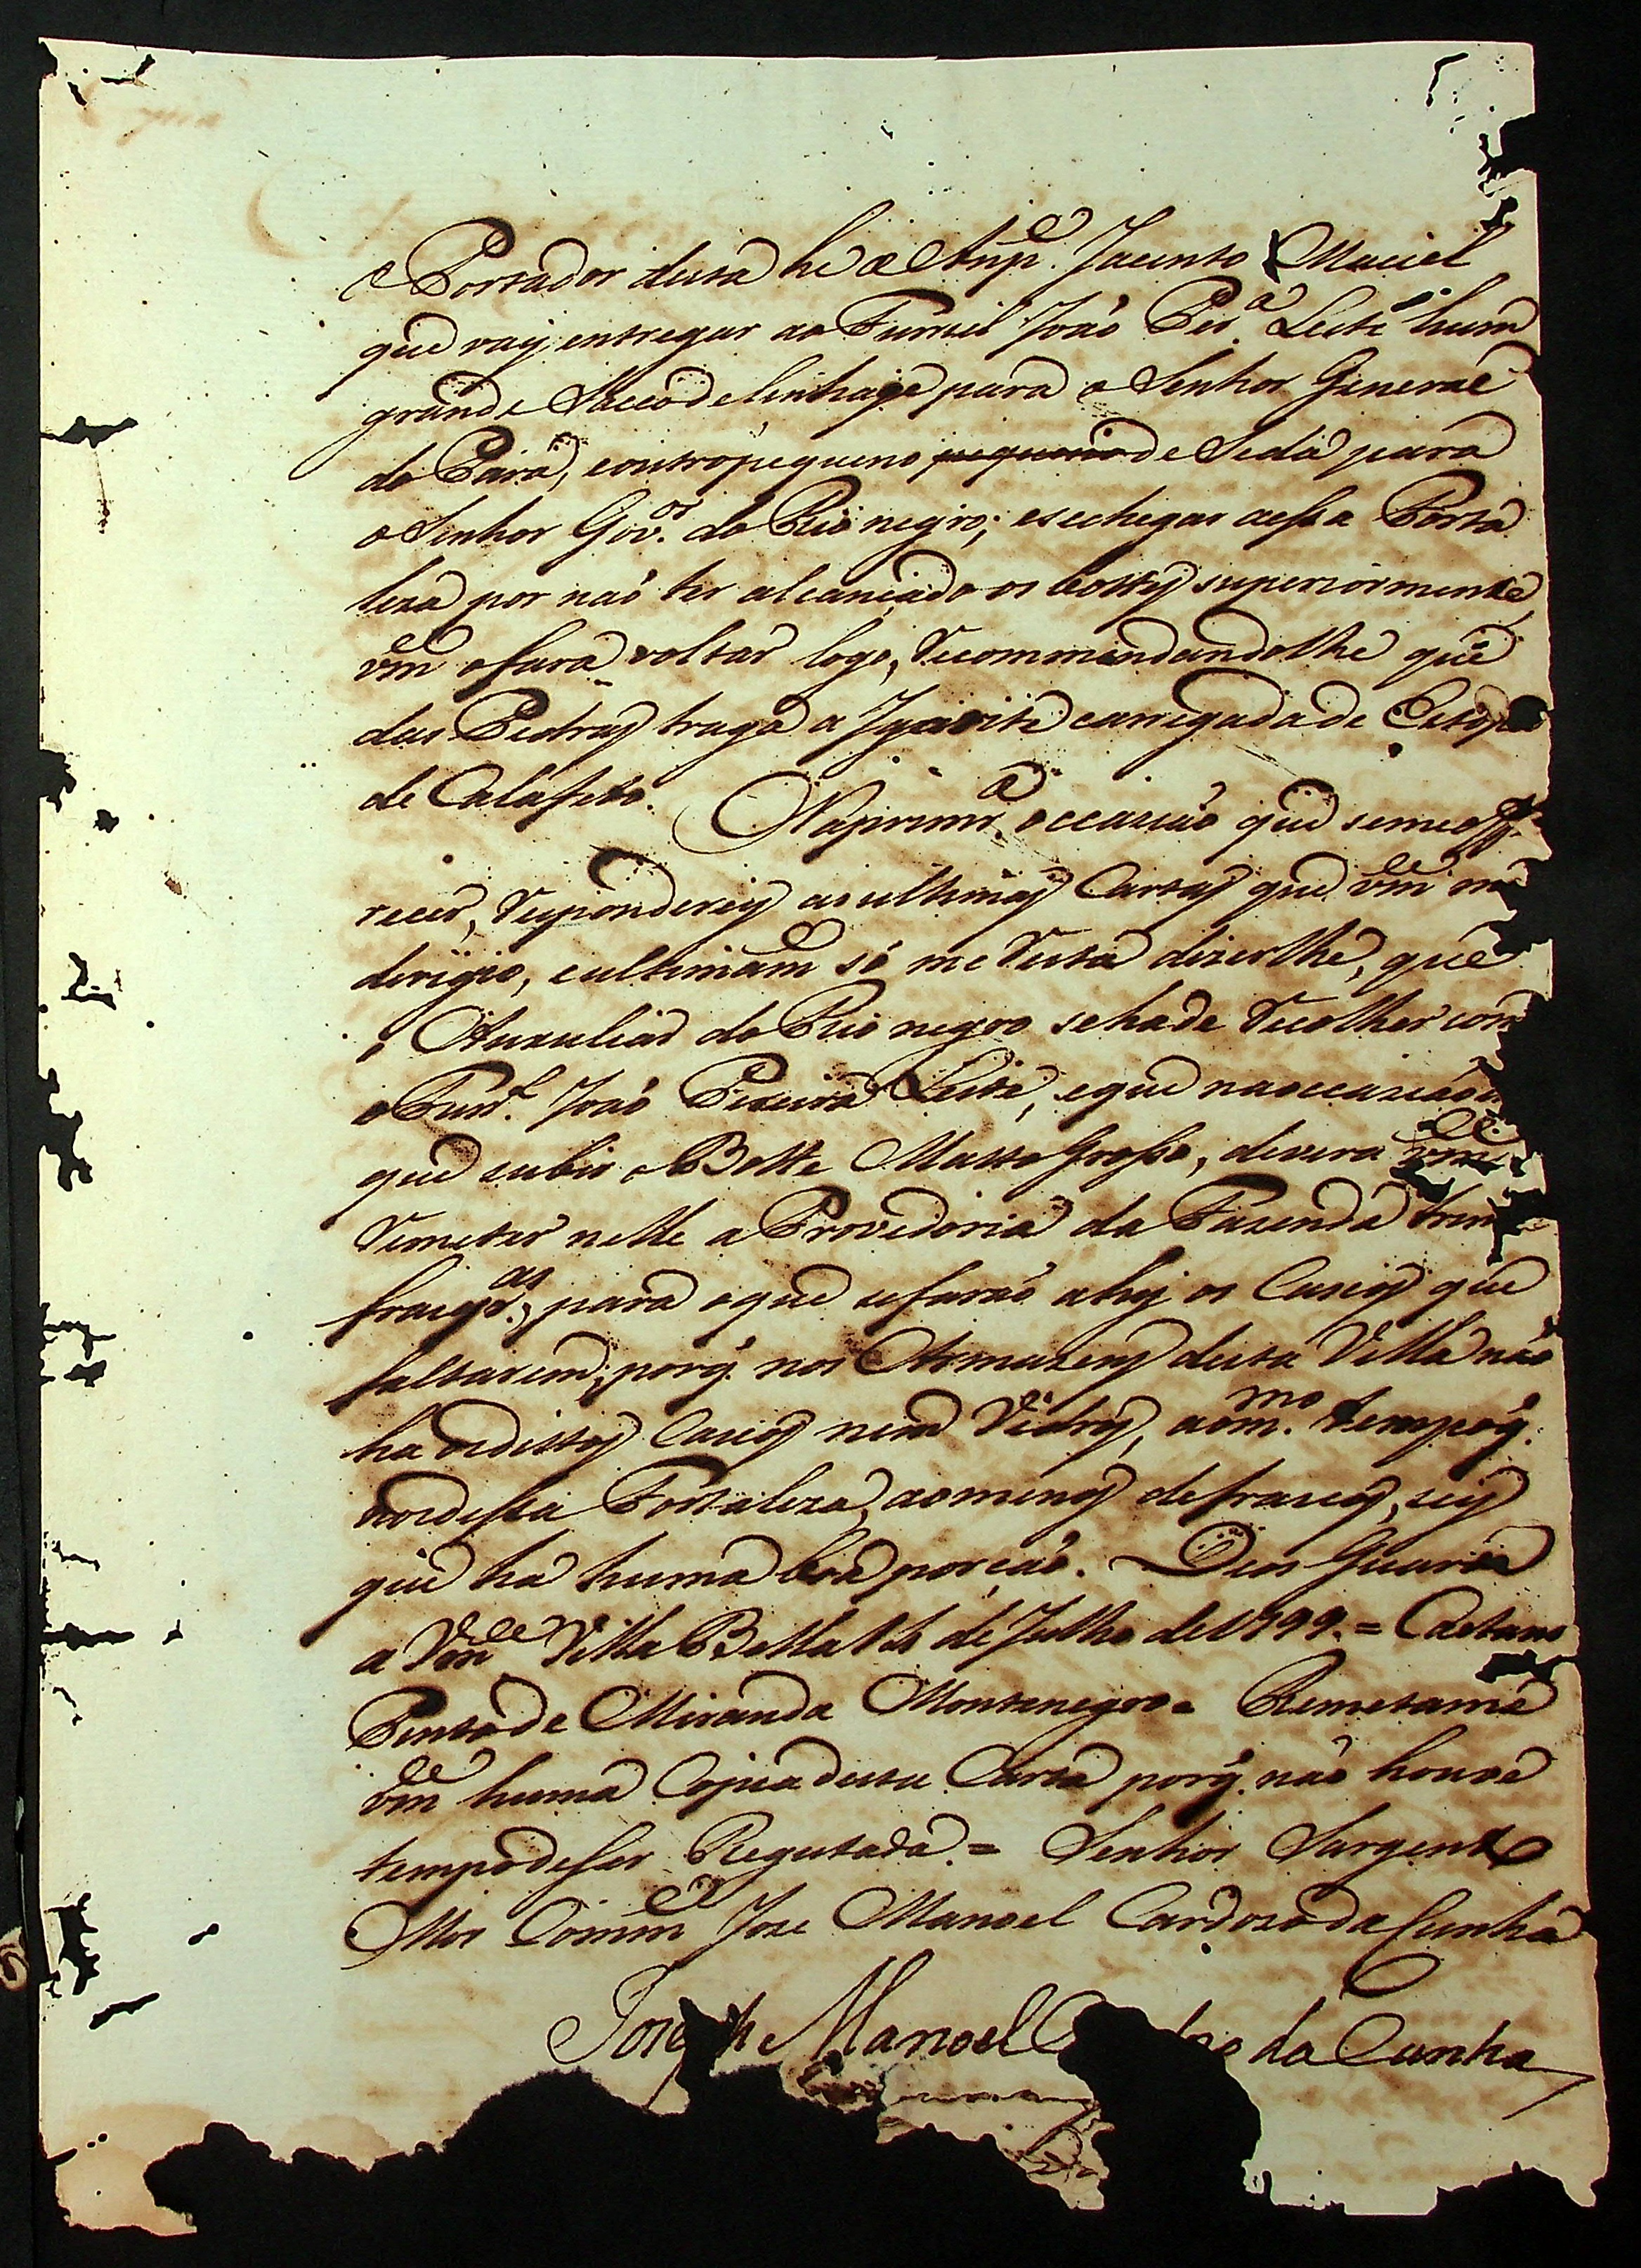 O Portador desta he o Anspe. Jacinto Maciel
que vay entregar ao Furriel João Per.a Leite hum
grande Sacco de linhage para o Senhor General
do Pará, e outro pequeno pequeno de Seda para
o Senhor Gov.or do Rio negro; e se chegar a essa Forta
leza por naõ ter alcançado os bottes superiormente,
vmce o fara voltar logo, recommendandolhe que
das Pedras traga a Ygarité carregada de Estopa
de Calafeto. Na primr.a occaziaõ que se me offe
recer, responderey as ultimas Cartas que vmce me
derigio, e ultimam.e só me resta dizerlhe, que
o Auxuliar do Rio negro se ha de recolher com
o Furr.l João Pereira Leite, e que na occaziaõ
que subir o Botte Matto Grosso, devera vmce
remeter nelle a Provedoria da Fazenda
frasq.as, para o que se faraõ ahy os Cascos que
faltarem, porq. nos Armazens desta Villa naõ
ha os dittos Cascos nem Vidros, ao m.mo tempo q.
nos dessa Fortaleza, ao menos de frascos, sey
que ha huma boa porçaõ. Deos Guarde
a Vmce Villa Bella de Julho de 1799. = Caetano
Pinto de Miranda Montenegro = Remetame
vmce huma Copia desta Carta porq. naõ houve
tempo de ser Registada. = Senhor Sargento
Mor Comm.e Joze Manoel Cardozo da Cunha
Joseph Manoel da Cunha